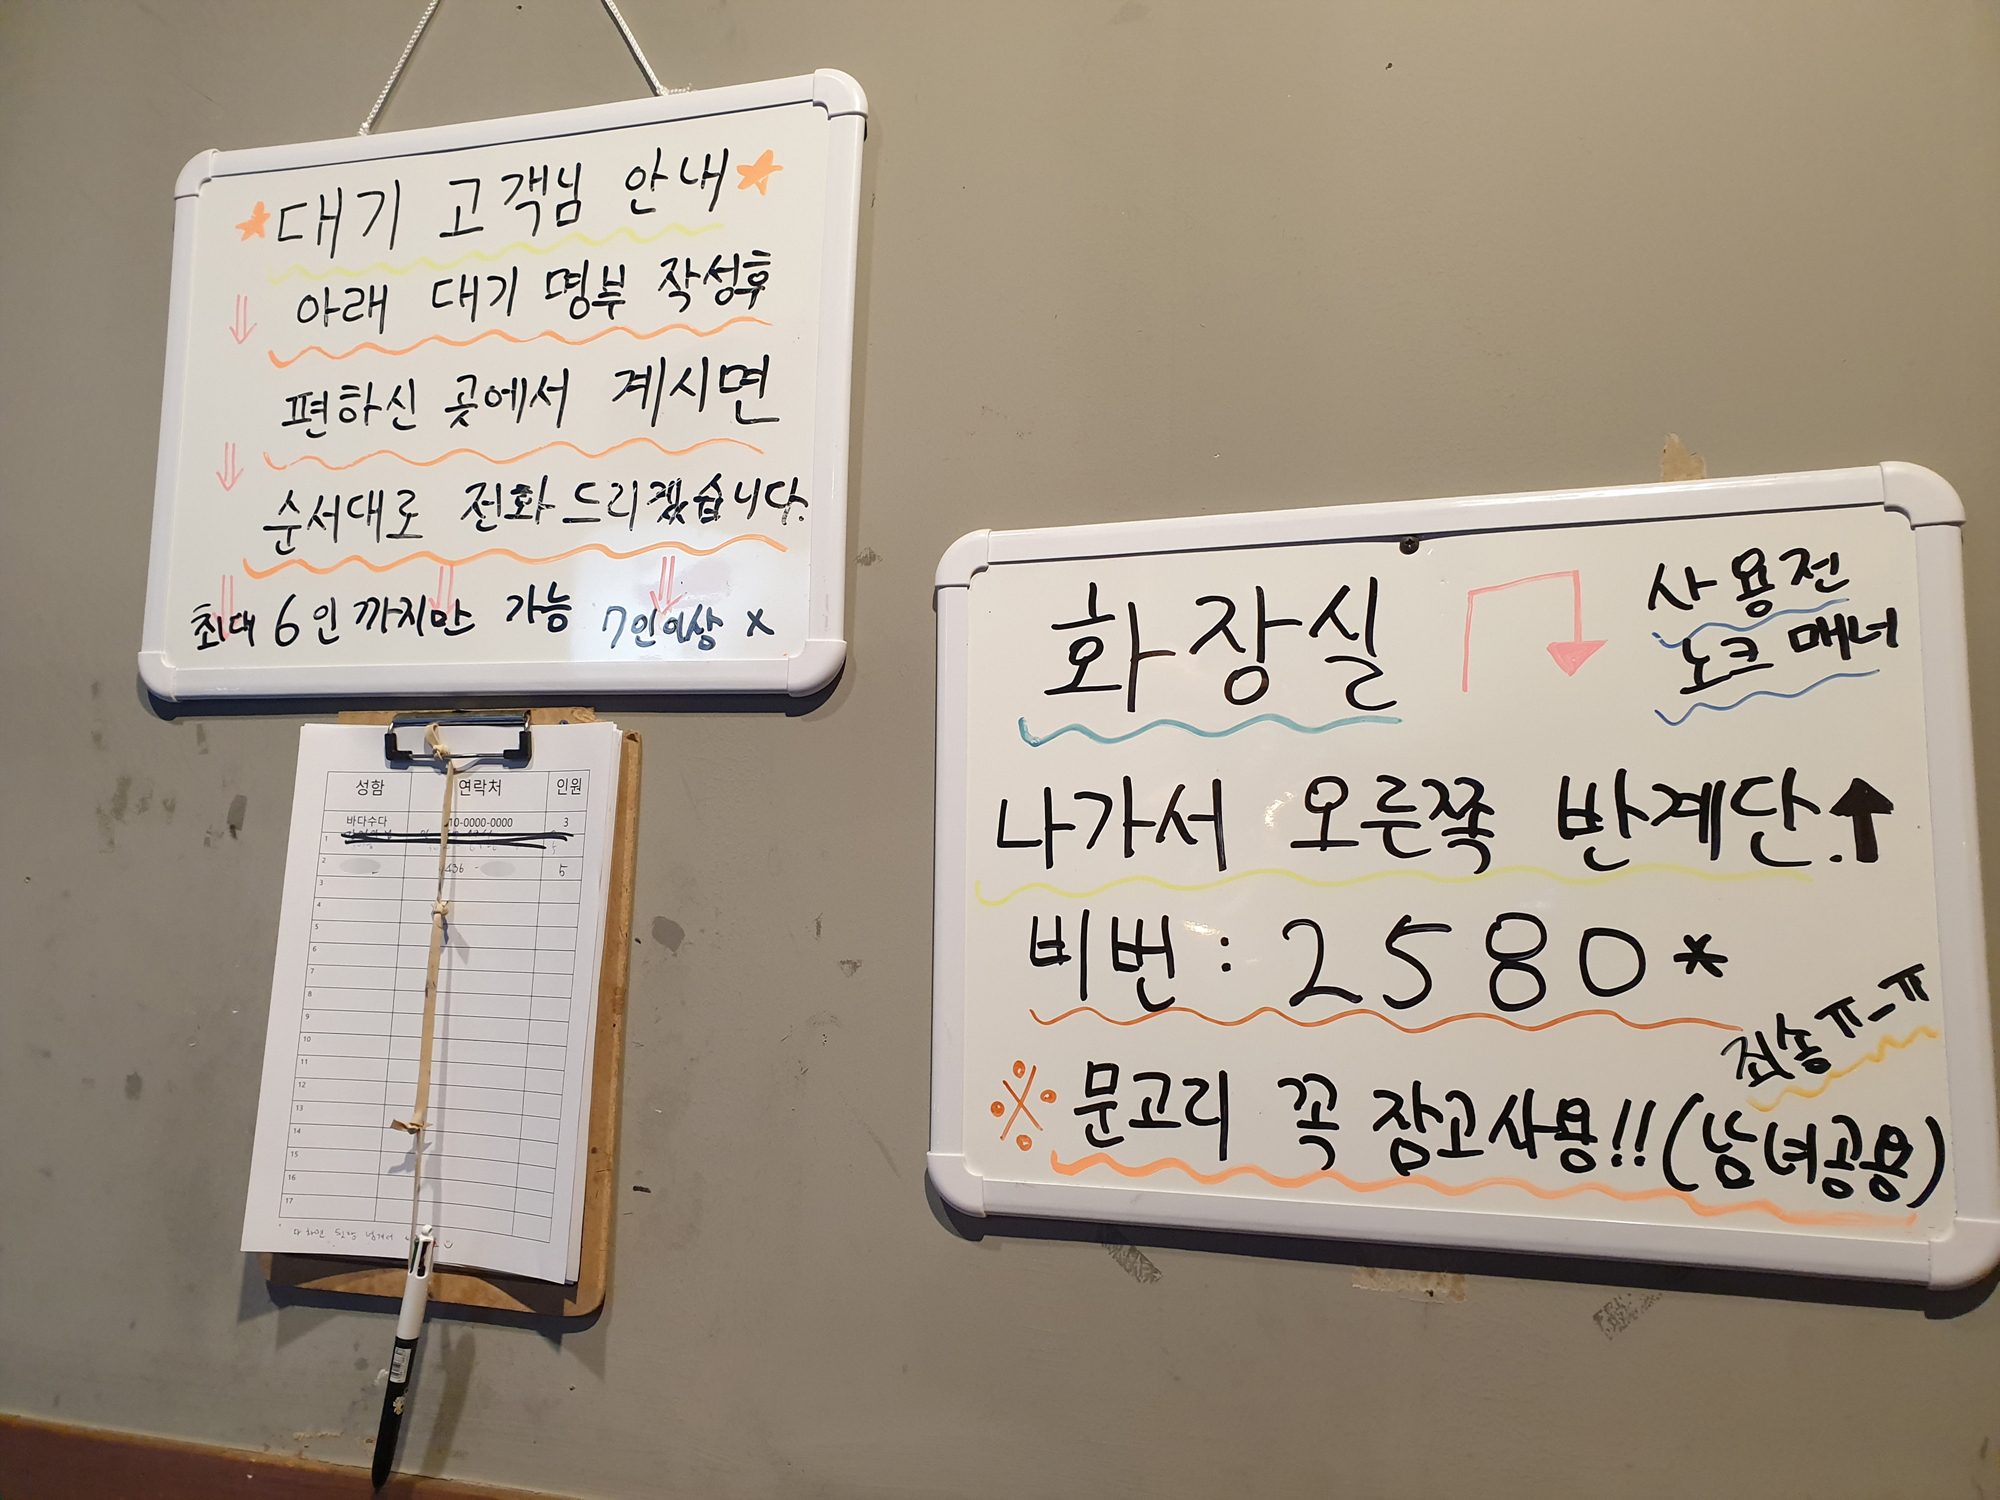 대기 고객님 안내
아래 대기 명부 작성후
편하신 곳에서 계시면
순서대로 전화 드리겠습니다.
최대 6인 까지만 가능 7인이상 x
성함 연락처 인원
바다수다 10-0000-0000 3
1
2 436 - 5
3
4
5
6
7
8
9
10
11
12
13
14
15
16
17
화장실
사용전
노크 매너
나가서 오른쪽 반계단.
비번 : 2580*
죄송 ㅠ_ㅠ
※ 문고리 꼭 잠고사용!! (남녀공용)